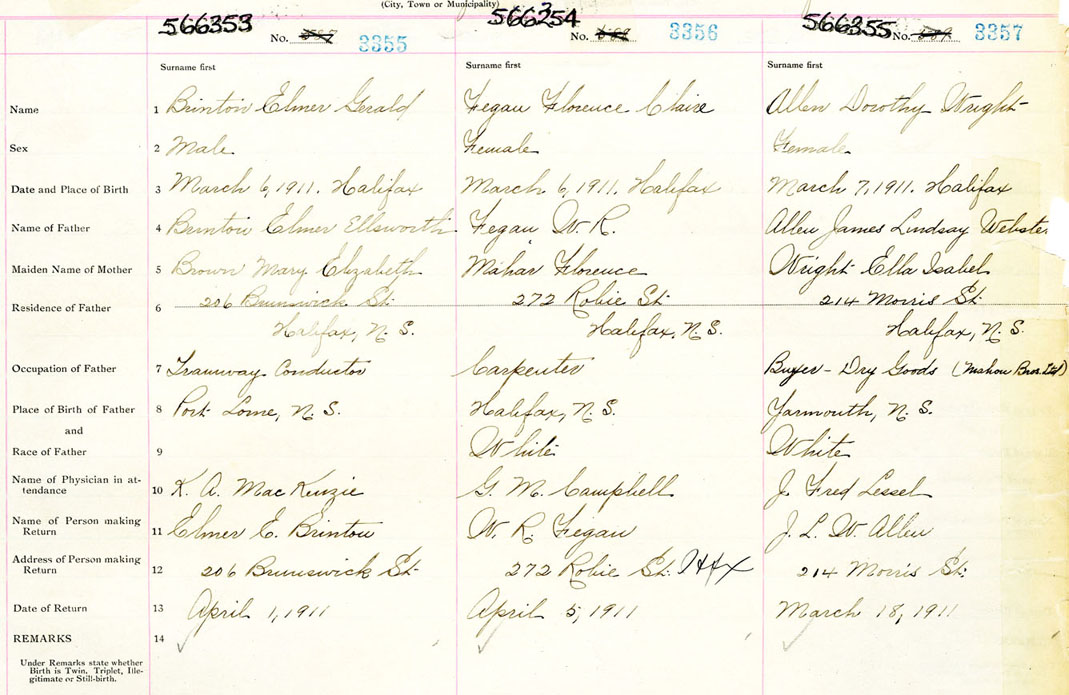 (City, Town or Municipality)
566353 No. 3355 566354 No. 3356 566355 No. 3357
Surname first Surname first Surname first
Name 1 Brinton Elmer Gerald Fegan Florence Claire Allen Dorothy Wright
Sex 2 Male Female Female
Date and Place of Birth 3 March 6, 1911. Halifax March 6, 1911. Halifax March 7, 1911. Halifax
Name of Father 4 Brinton Elmer Ellsworth Fegan W. R. Allen James Lindsay Webster
Maiden Name of Mother 5 Brown Mary Elizabeth Mahar Florence Wright Ella Isabel
Residence of Father 6 206 Brunswick St. 272 Robie St. 214 Morris St.
Halifax, N. S. Halifax, N. S. Halifax, N. S.
Occupation of Father 7 Tramway Conductor Carpenter Buyer - Dry Goods (Mahon Bros. Ltd)
Place of Birth of Father 8 Port Lorne, N. S. Halifax, N. S. Yarmouth, N. S.
and
Race of Father 9 White White
Name of Physician in at-
tendance 10 K. A. MacKenzie G. M. Campbell J. Fred Lessel
Name of Person making
Return 11 Elmer E. Brinton W. R. Fegan J. L. W. Allen
Address of Person making
Return 12 206 Brunswick St. 272 Robie St. Hfx 214 Morris St.
Date of Return 13 April 1, 1911 April 5, 1911 March 18, 1911
REMARKS 14
Under Remarks state whether
Birth is Twin, Triplet, Ille-
gitimate or Still-birth.